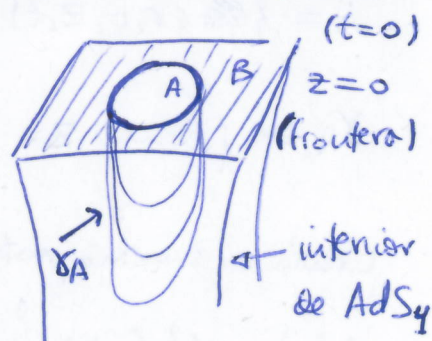 (t=0)
A
B
z=0
(frontera)
γA
interior
de AdS4